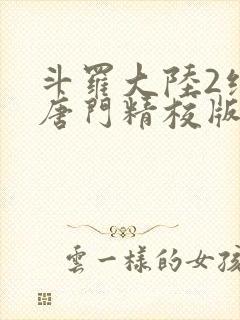 斗羅大陸2
唐門精校版
雲一樣的女孩